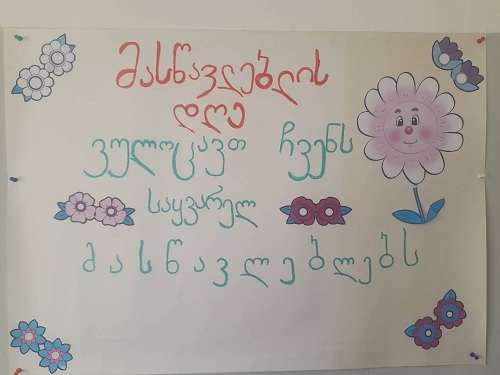 მასწავლებლის
დღე
ვულოცავთ ჩვენს
საყვარელ
მასწავლებლებს